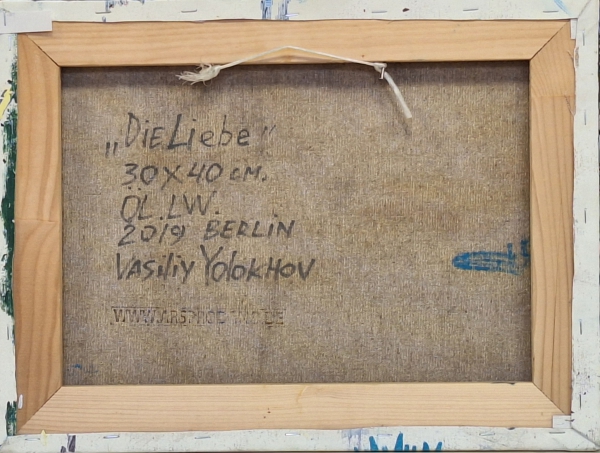 „Die Liebe“
30 x 40 cm.
ÖL. LW.
2019 BERLIN
Vasiliy Yolokhov